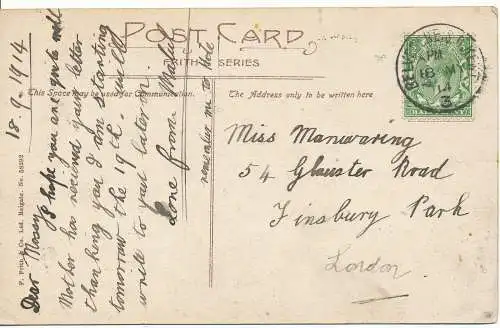 POST CARD
FRITH'S SERIES
This Space may be used for Communication.
The Address only to be written here
18.9.1914
Dear
I hope you are quite well
Mother has received your letter
thanking you I am starting
tomorrow the 19th. I will
write to you later on.
Love from Mabel
remember me to
Miss Manwaring
54 Glouster Road
Finsbury Park
London
F. Frith & Co. Ltd. Reigate. No. 58292